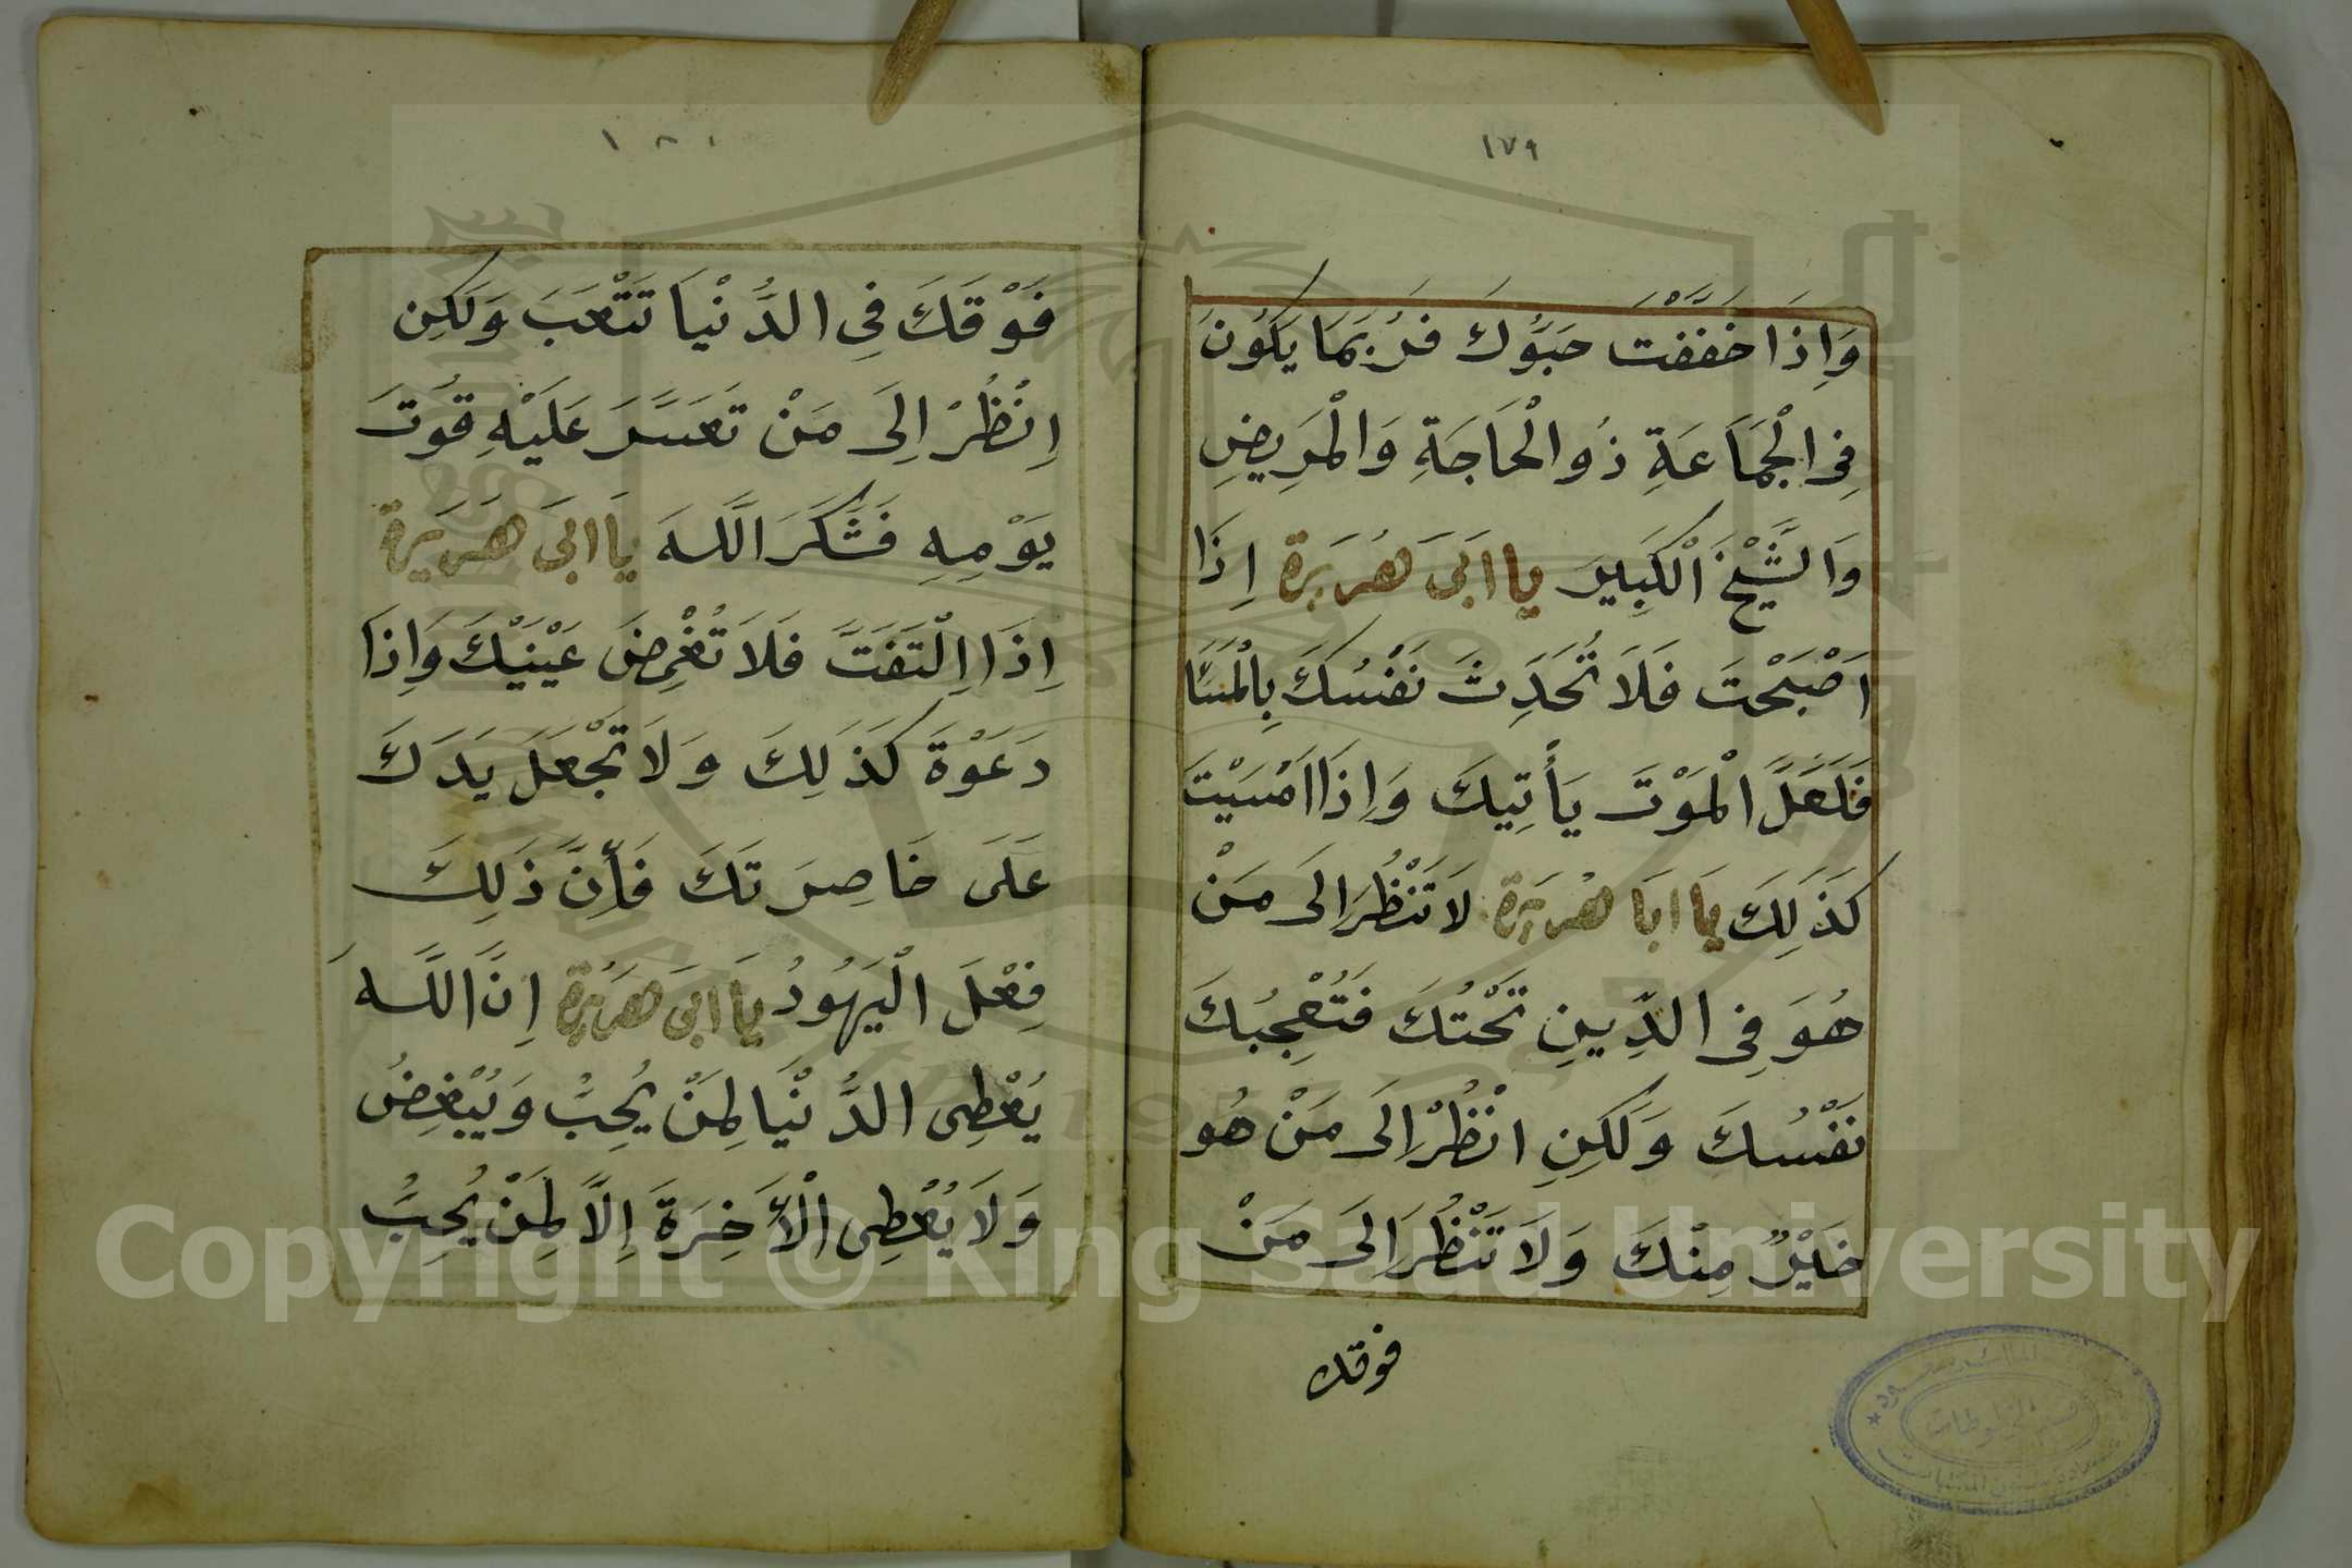 ١٧٩
وَاِذَا خَفَّفْتَ حَبُّوكَ فَرُبَمَا يَكُونُ
فِى الْجَمَاعَةِ ذُو الْحَاجَةِ وَالْمَرِيضِ
وَالشَّيْخَ الْكَبِيرَ يا ابَىَ هُرَيرَة اِذَا
اَصْبَحْتَ فَلَا تُحَدِثَ نَفْسُكَ بِالْمَسَا
فَلَعَلَّ الْمَوْتَ يَأْتِيكَ وَاِذَا اَمْسَيْتَ
كَذَلِكَ يَا ابَا هُرَيرَة لَا تَنْظُرَ اِلَى مَنْ
هُوَ فِى الدِّينِ تَحْتُكَ فَتُعْجِبُكَ
نَفْسُكَ وَلَكِنِ انْظُرْ اِلَى مَنْ هُو
خَيْرٌ مِنْكَ وَلَا تَنْظُرَ اِلَى مَنْ
فوقك
١٨٠
فَوْقَكَ فِى الدُّنْيَا تَتْعَبَ وَلَكِن
اِنْظُرْ اِلَى مَنْ تَعَسَّرَ عَلَيْهِ قُوتَ
يَوْمِهِ فَشَكَرَ اللَّهَ يَا ابَىَ هَرَيَرة
اِذَا اِلْتَفَتَّ فَلَا تُغْمِضَ عَيْنَيْكَ وَاِذَا
دَعَوْةَ كَذَلِكَ وَلَا تَجْعَلَ يَدَكَ
عَلَى خَاصِرَتَكَ فَأِنَّ ذَلِكَ
فِعْلَ الْيَهُودُ يَا ابَىَ هَرَيُرة اِنَّ اللَّهَ
يُعْطِى الدُّنْيَا لِمَنْ يُحِبُّ وَيُبْغِضُ
وَلَا يُعْطِى الْأَخِرَةَ اِلَّا لِمَنْ يُحِبُّ
Copyright © King Saud University